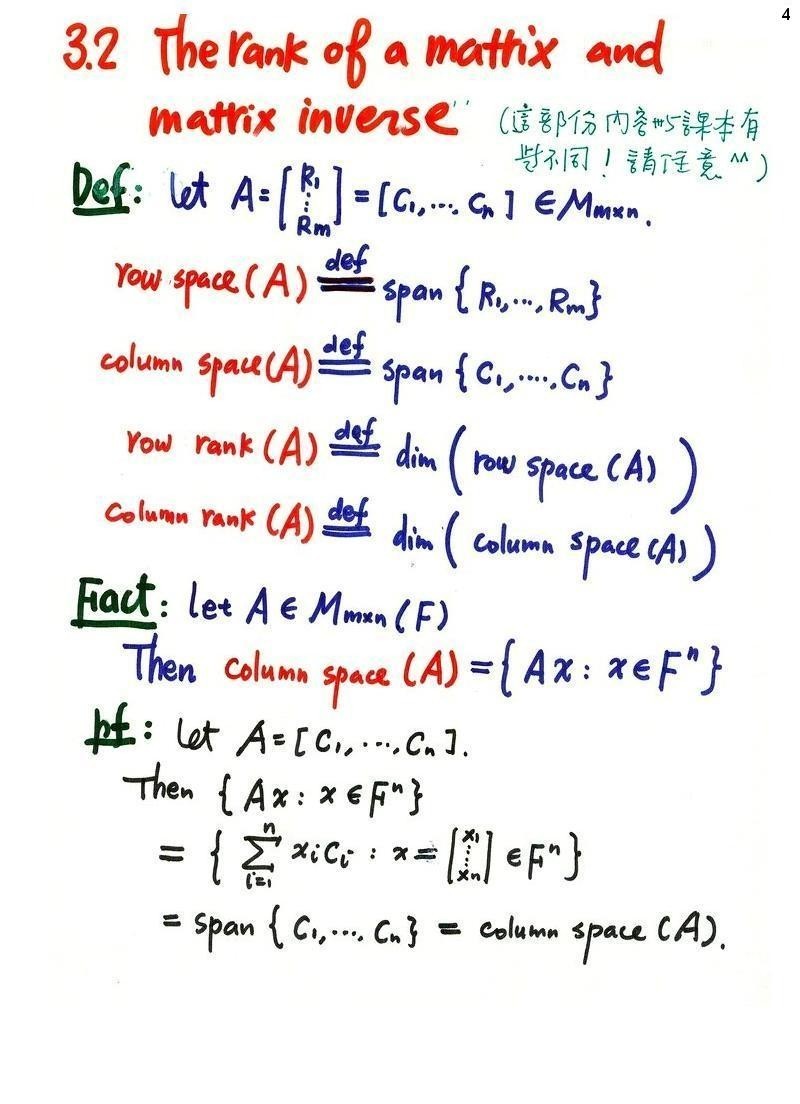 4
3.2 The rank of a matrix and
matrix inverse
(這部份內容與課本有
些不同！請注意 ^^)
Def: let A = [R₁ ⋮ Rm] = [C₁, ... Cn] ∈ Mm×n.
row space (A) def== span { R₁, ..., Rm }
column space (A) def== span { C₁, ...., Cn }
row rank (A) def== dim ( row space (A) )
column rank (A) def== dim ( column space (A) )
Fact: let A ∈ Mm×n (F)
Then column space (A) = { Ax : x ∈ Fⁿ }
pf: let A = [ C₁, ..., Cn ].
Then { Ax : x ∈ Fⁿ }
= { ∑ᵢ₌₁ⁿ xᵢCᵢ : x = [x₁ ⋮ xn] ∈ Fⁿ }
= span { C₁, ... Cn } = column space (A).